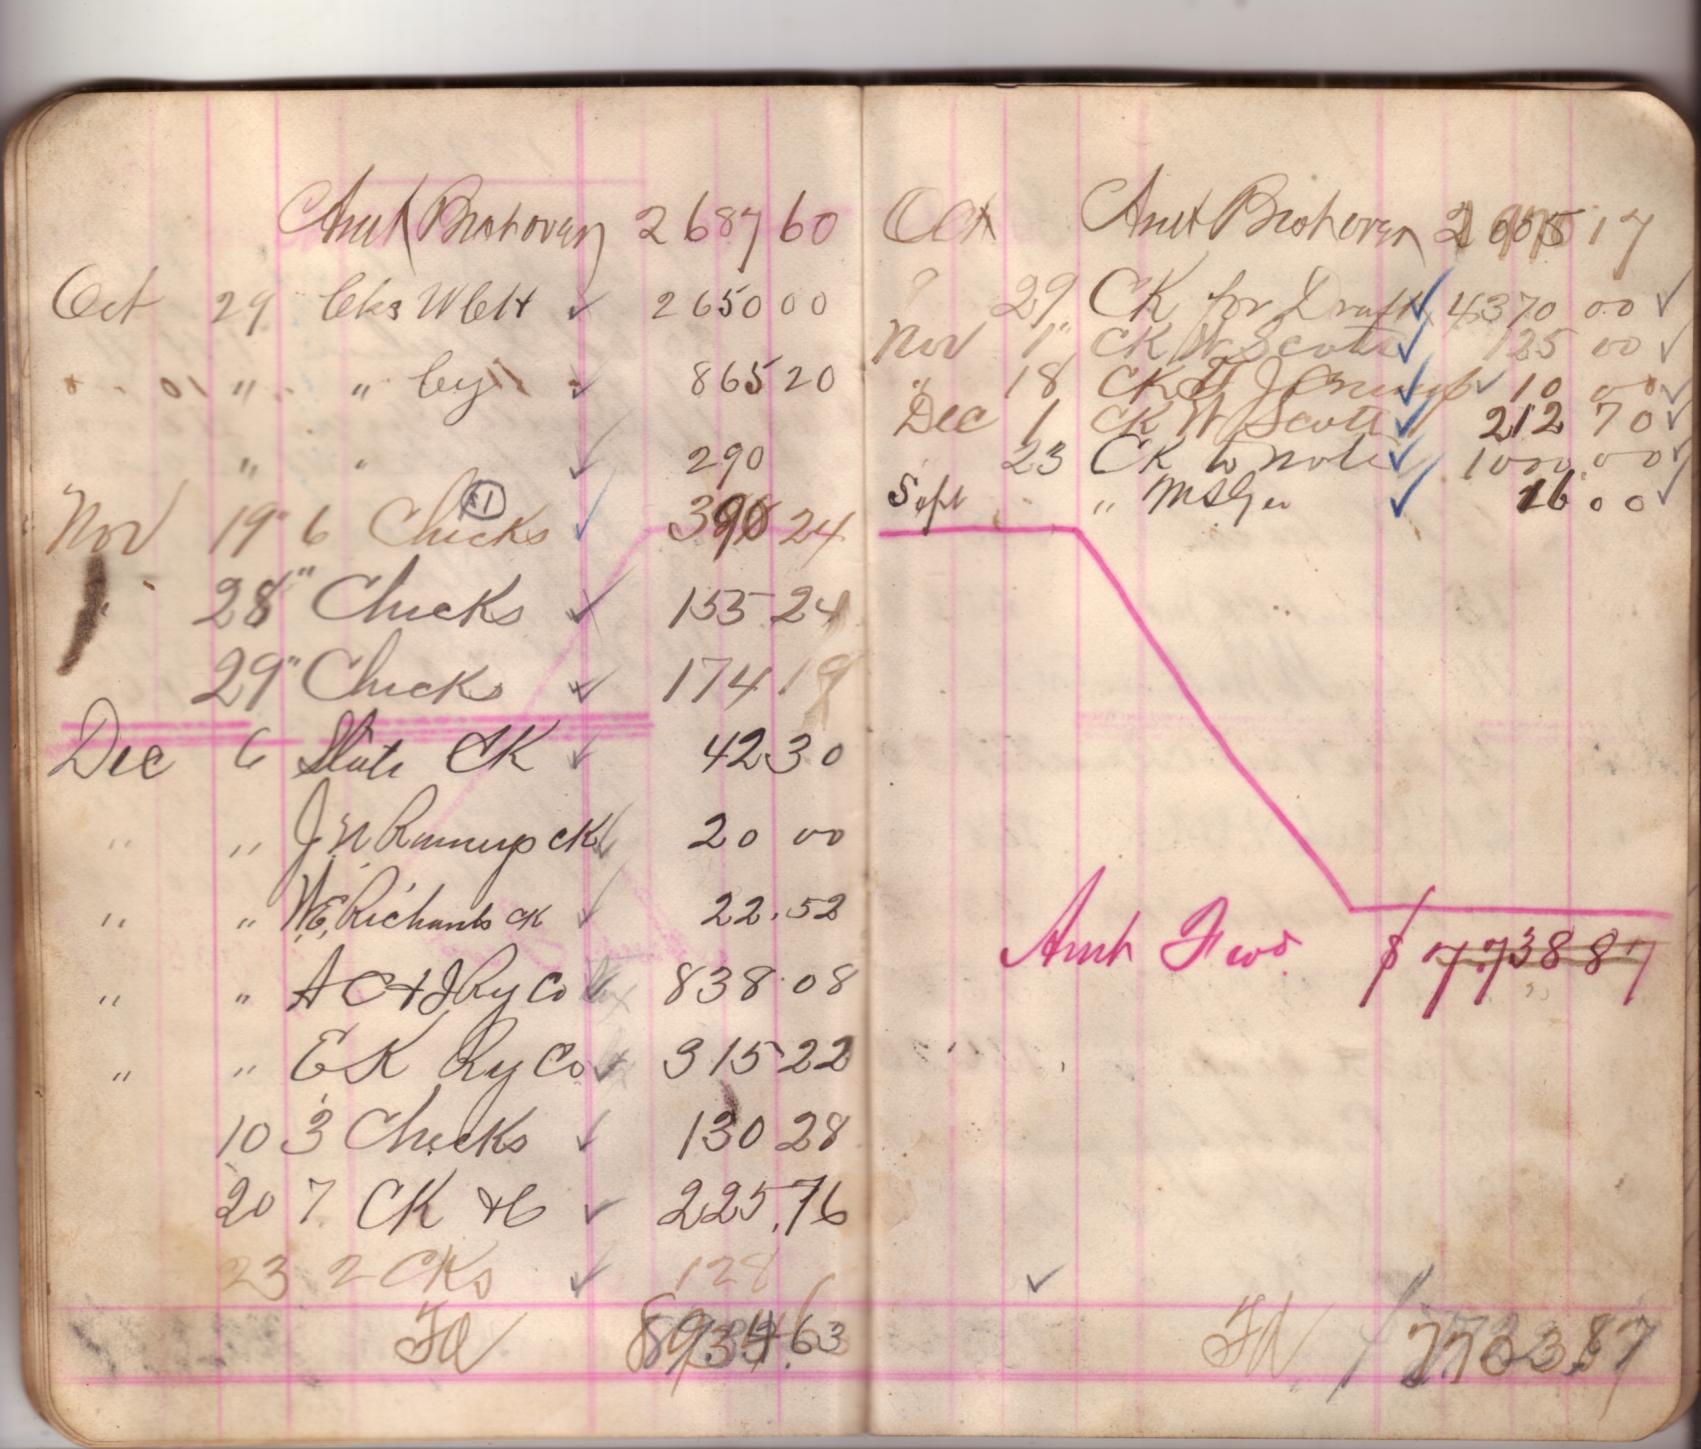 Amt Brot over 2687 60
Oct 29 Cks W 2650 00
" " 865 20
" " 290
Nov 19 " 6 Checks 24
28 " Checks 155 24
29 " Checks 174 19
Dec 6 State CK 42 30
" " J N Runnup CK 20 00
" " W.E. Richards CK 22.52
" " A C & J Ry Co 838.08
" " E K Ry Co 315 22
10 3 Checks 130 28
20 7 CK &C 225.76
23 2 CKs 128
Fd .63
Oct Amt Brot over 17
29 CK for Draft 4370 00
Nov 1" CK W Scott 125 00
" 18 CK J 10 00
Dec 1 CK W Scott 212 70
23 CK to note 1000 00
Sept " 16 00
Amt Fwd. $ 7738 87
Fd 87